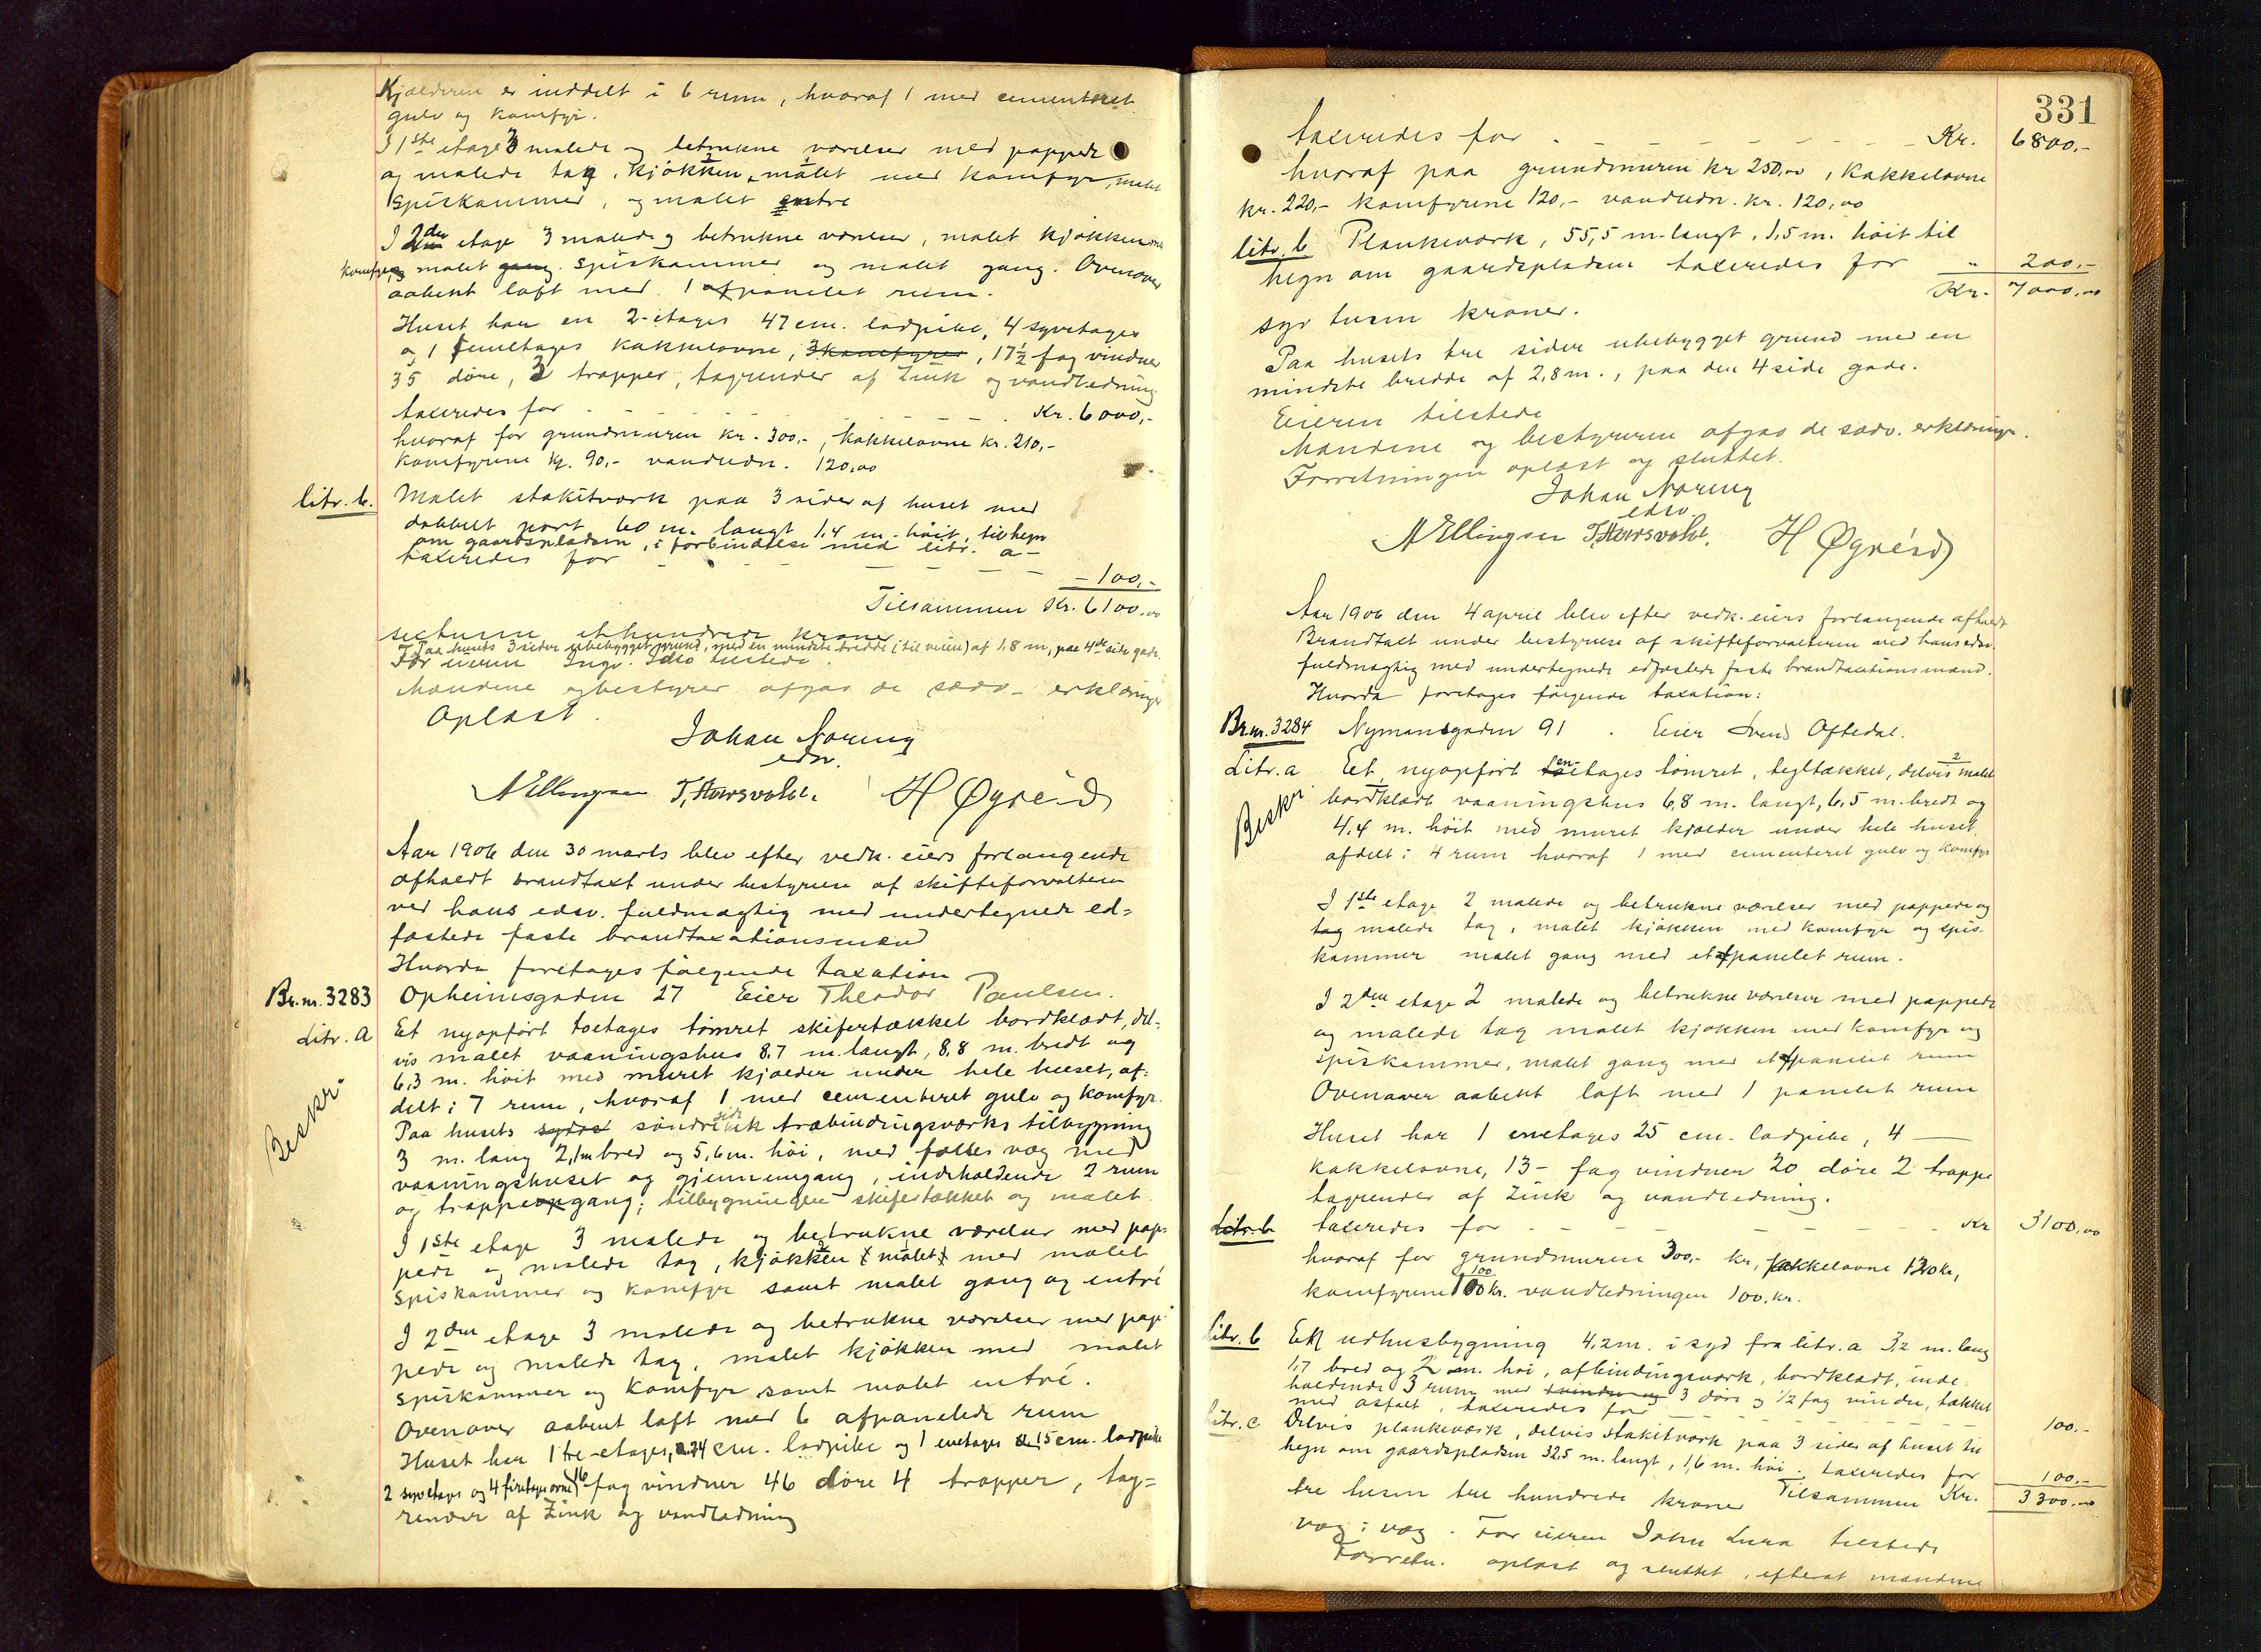 Kjælderen er inddelt i 6 rum, hvoraf 1 med cementeret
gulv og komfyr.
I 1ste etage 3 malede og betrukne værelser med pappede
og malede tag, kjøkken, malet med komfyr, malet
spiskammer, og malet entre
I 2den etage 3 malede og betrukne værelser, malet kjøkken med
komfyr, og malet gang. spiskammer og malet gang. Ovenover
aabent loft med 1 afpanelet rum.
Huset har en 2-etages 47 cm. ladpibe, 4 syvetages
og 1 femetages kakkelovne, 3 komfyrer, 17½ fag vinduer
35 døre, 3 trapper, tagrender af Zink og vandledning
taxeredes for - - - - - - Kr. 6000,-
hvoraf for grundmuren kr. 300,-, kakkelovne kr. 210,-
komfyrene kr. 90,- vandledn. 120,00
litr. b. Malet stakitværk paa 3 sider af huset med
dobbelt port 60 m. langt 1,4 m. høit, til hegn
om gaardspladsen, i forbindelse med litr. a -
taxeredes for - - - - - - 100,-
Tilsammen Kr. 6100,00
sextusen ethundrede kroner
Paa husets 3 sider ubebygget grund, med en mindste bredde (til veien) af 1,8 m, paa 4de side gade.
For eieren Ingv. Idsø tilstede.
Mændene og bestyrer afgav de sædv. erklæringer
Oplæst.
Johan Noreng
edsv.
A Ellingsen T. Haarsvold. H Øgreid
Aar 1906 den 30 marts blev efter vedk. eiers forlangende
afholdt brandtaxt under bestyrelse af skifteforvalteren
ved hans edsv. fuldmægtig med undertegnede ed=
fæstede faste brandtaxationsmænd
Hvorda foretages følgende taxation
Br. nr. 3283 Opheimsgaden 27 Eier Theodor Paulsen.
Litr. a Et nyopført toetages tømret skifertækket bordklædt, del-
vis malet vaaningshus 8,7 m. langt, 8,8 m. bredt og
Beskr.
6,3 m. høit med muret kjælder under hele huset, af-
delt i 7 rum, hvoraf 1 med cementeret gulv og komfyr.
Paa husets søndre side en træbindingsværks tilbygning
3 m. lang 2,1 m bred og 5,6 m. høi, med fælles væg med
vaaningshuset og gjennemgang, indeholdende 2 rum
og trappeopgang; tilbygningen skifertækket og malet.
I 1ste etage 3 malede og betrukne værelser med pap-
pede og malede tag, kjøkken malet med malet
spiskammer og komfyr samt malet gang og entré
I 2den etage 3 malede og betrukne værelser med pap-
pede og malede tag, malet kjøkken med malet
spiskammer og komfyr samt malet entré.
Ovenover aabent loft med 6 afpanelede rum
Huset har 1 tre-etages, 34 cm. ladpibe og 1 enetages 15 cm. ladpibe
2 syvetages og 4 firetages ovne) 16 fag vinduer 46 døre 4 trapper, tag=
render af Zink og vandledning
331
taxeredes for - - - - - Kr. 6800,-
hvoraf paa grundmuren kr 250,00, kakkelovne
kr. 220,- komfyrene 120,- vandledn. kr. 120,00
litr. b Plankeværk, 55,5 m. langt, 1,5 m. høit til
hegn om gaardspladsen taxeredes for " 200,-
Kr. 7000,00
syv tusen kroner.
Paa husets tre sider ubebygget grund med en
mindste bredde af 2,8 m., paa den 4 side gade.
Eieren tilstede
Mændene og bestyreren afgav de sædv. erklæringer.
Forretningen oplæst og sluttet.
Johan Noreng
edsv.
A Ellingsen T. Haarsvold. H Øgreid
Aar 1906 den 4 april blev efter vedk. eiers forlangende afholdt
Brandtaxt under bestyrelse af skifteforvalteren ved hans edsv.
fuldmægtig med undertegnede edfæstede faste brandtaxtionsmænd.
Hvorda foretages følgende taxation:
Br. nr. 3284 Nymansgaden 91. Eier Svend Oftedal.
Litr. a Et nyopført enetages tømret, tegltækket, delvis malet
Beskr.
bordklædt vaaningshus 6,8 m. langt, 6,5 m. bredt og
4,4 m. høit med muret kjælder under hele huset,
afdelt i 4 rum hvoraf 1 med cementeret gulv og komfyr
I 1ste etage 2 malede og betrukne værelser med pappede og
tag malede tag, malet kjøkken med komfyr og spis-
kammer malet gang med et afpanelet rum.
I 2den etage 2 malede og betrukne værelser med pappede
og malede tag malet kjøkken med komfyr og
spiskammer, malet gang med et afpanelet rum
Ovenover aabent loft med 1 panelet rum
Huset har 1 enetages 25 cm. ladpibe, 4 —
kakkelovne, 13- fag vinduer 20 døre 2 trapper
tagrender af Zink og vandledning.
Litr. b taxeredes for - - - - - Kr 3100,00
hvoraf for grundmuren 300,- kr, kakkelovne 120 kr,
komfyrene 100 kr. vandledningen 100. kr.
Litr. b Et udhusbygning 4,2 m. i syd fra litr. a 3,2 m. lang
1,7 bred og 2 m. høi, afbindingsværk, bordklædt, inde-
holdende 3 rum med 3 døre og ½ fag vindu, tækket
med asfalt, taxeredes for - - - - - 100.-
Litr. c Delvis plankeværk, delvis stakitværk paa 3 sider af huset til
hegn om gaardspladsen 32,5 m. langt, 1,6 m. høi. taxeredes for 100.-
Tilsammen Kr. 3300,00
tre tusen tre hundrede kroner
væg i væg. For eieren John Lura tilstede
Forretn. oplæst og sluttet, efterat mændene